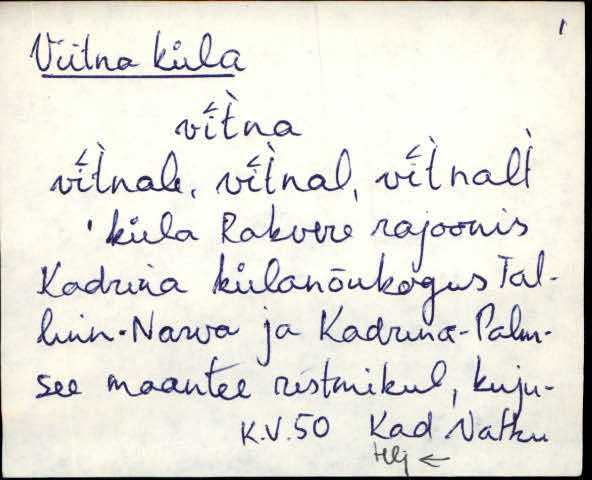 1
Viitna küla
vi͕t̀na
vi͕t̀nale, vi͕t̀nal, vi͕t̀nalt̀
'küla Rakvere rajoonis
Kadrina külanõukogus Tal-
linn-Narva ja Kadrina-Palm-
see maantee ristmikul, kuju-
K.V.50 Kad Natku
Hlj ←